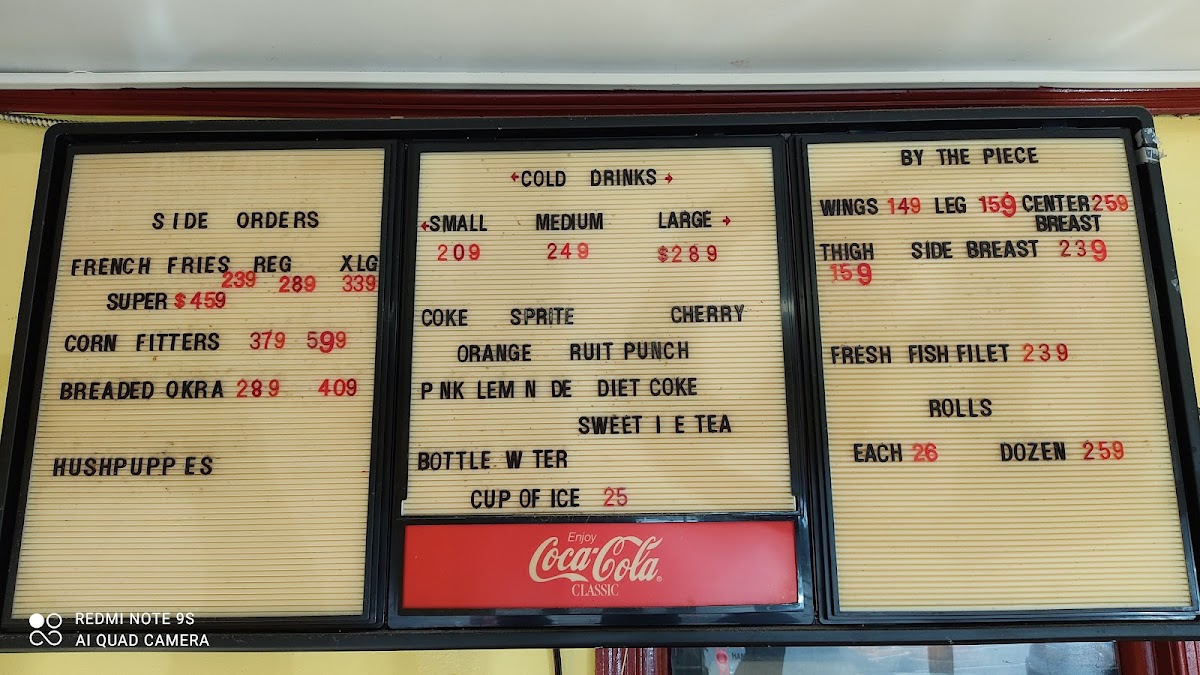 SIDE ORDERS
FRENCH FRIES REG XLG
239 289 339
SUPER $459
CORN FITTERS 379 599
BREADED OKRA 289 409
HUSHPUPP ES
COLD DRINKS
SMALL MEDIUM LARGE
209 249 $289
COKE SPRITE CHERRY
ORANGE RUIT PUNCH
P NK LEM N DE DIET COKE
SWEET I E TEA
BOTTLE W TER
CUP OF ICE 25
Enjoy
Coca-Cola
CLASSIC
BY THE PIECE
WINGS 149 LEG 159 CENTER 259
BREAST
THIGH SIDE BREAST 239
159
FRESH FISH FILET 239
ROLLS
EACH 26 DOZEN 259
REDMI NOTE 9S
AI QUAD CAMERA